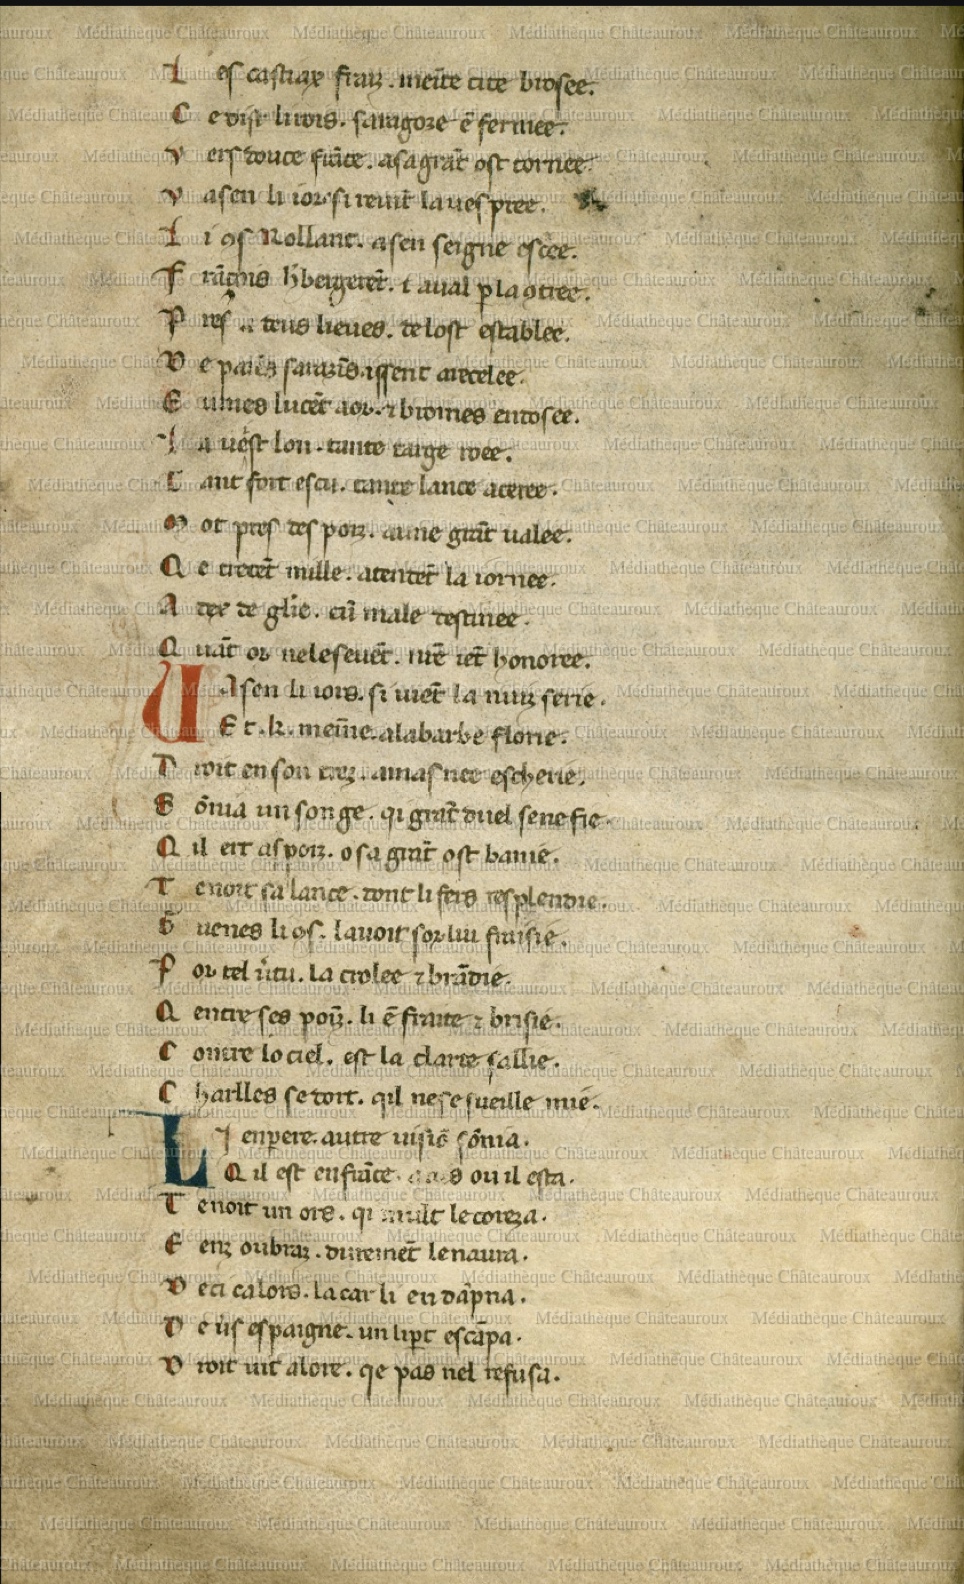 L es castiax fraiz. meīte cite brosee.
C e dist li rois. saragoze ē fermee.
V ers douce frāce. a sa grāt ost tornee.
V a sen li iors si reuīt la uespree.
L i q̄s Rollant. a sen seigne escēe.
F rāçois h̄bergerēt. τ aual p la 9tree.
P res a deus lieues. de lost establee.
D e paiēs sarazīs. issent a recelee.
E umes lucēt a or. τ bromes entosee.
L a uest lon. tante targe roee.
T ant fort escu. tante lance aceree.
M ot pres des porz. a une grāt ualee.
Q e trecēt mille. atendēt la iornee.
A dex de glīe. cū male destinee.
Q uāt or nele seuēt. mlē iēt honoree.
V A sen li iors. si uiēt la nuiz serie.
E t .k. meīne. a la barbe florie.
D roit en son trez. a mas nee escherie.
S ōnia un songe. qi grāt duel senefie.
Q il ert as porz. o sa grāt ost banie.
T enoit sa lance. dont li fers resplendie.
G uenes li q̄s. lauoit sor lui fraisie.
P or tel ūtu. la crolee τ brādie.
Q entre ses poīz. li ē fraite τ brisie.
C ontre lo ciel. est la clarte sallie.
C harlles se dort. qil ne se sueille mie.
L I enpere. autre uisiō sōnia.
Q il est en frāce. ou il esta.
T enoit un ors. qi mult le coreza.
E enz ou braz. durement le naura.
D eci ca lors. la car li en dāpna.
D e uīs espaigne. un lipt escāpa.
D roit uit alore. qe pas nel refusa.